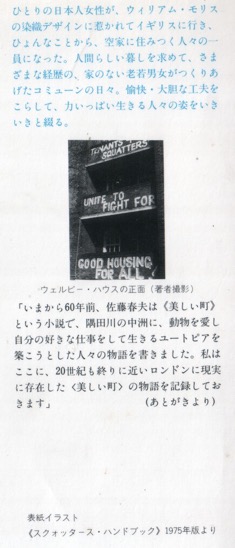 ひとりの日本人女性が、ウィリアム・モリス
の染織デザインに惹かれてイギリスに行き、
ひょんなことから、空家に住みつく人々の一
員になった。人間らしい暮しを求めて、さま
ざまな経歴の、家のない老若男女がつくりあ
げたコミューンの日々。愉快・大胆な工夫を
こらして、力いっぱい生きる人々の姿をいき
いきと綴る。
TENANTS
SQUATTERS
UNITE TO
FIGHT FOR
GOOD HOUSING
FOR ALL
ウェルビー・ハウスの正面(著者撮影)
「いまから60年前、佐藤春夫は《美しい町》
という小説で、隅田川の中洲に、動物を愛し
自分の好きな仕事をして生きるユートピアを
築こうとした人々の物語を書きました。私は
ここに、20世紀も終りに近いロンドンに現実
に存在した〈美しい町〉の物語を記録してお
きます」 (あとがきより)
表紙イラスト
《スクォッタース・ハンドブック》1975年版より